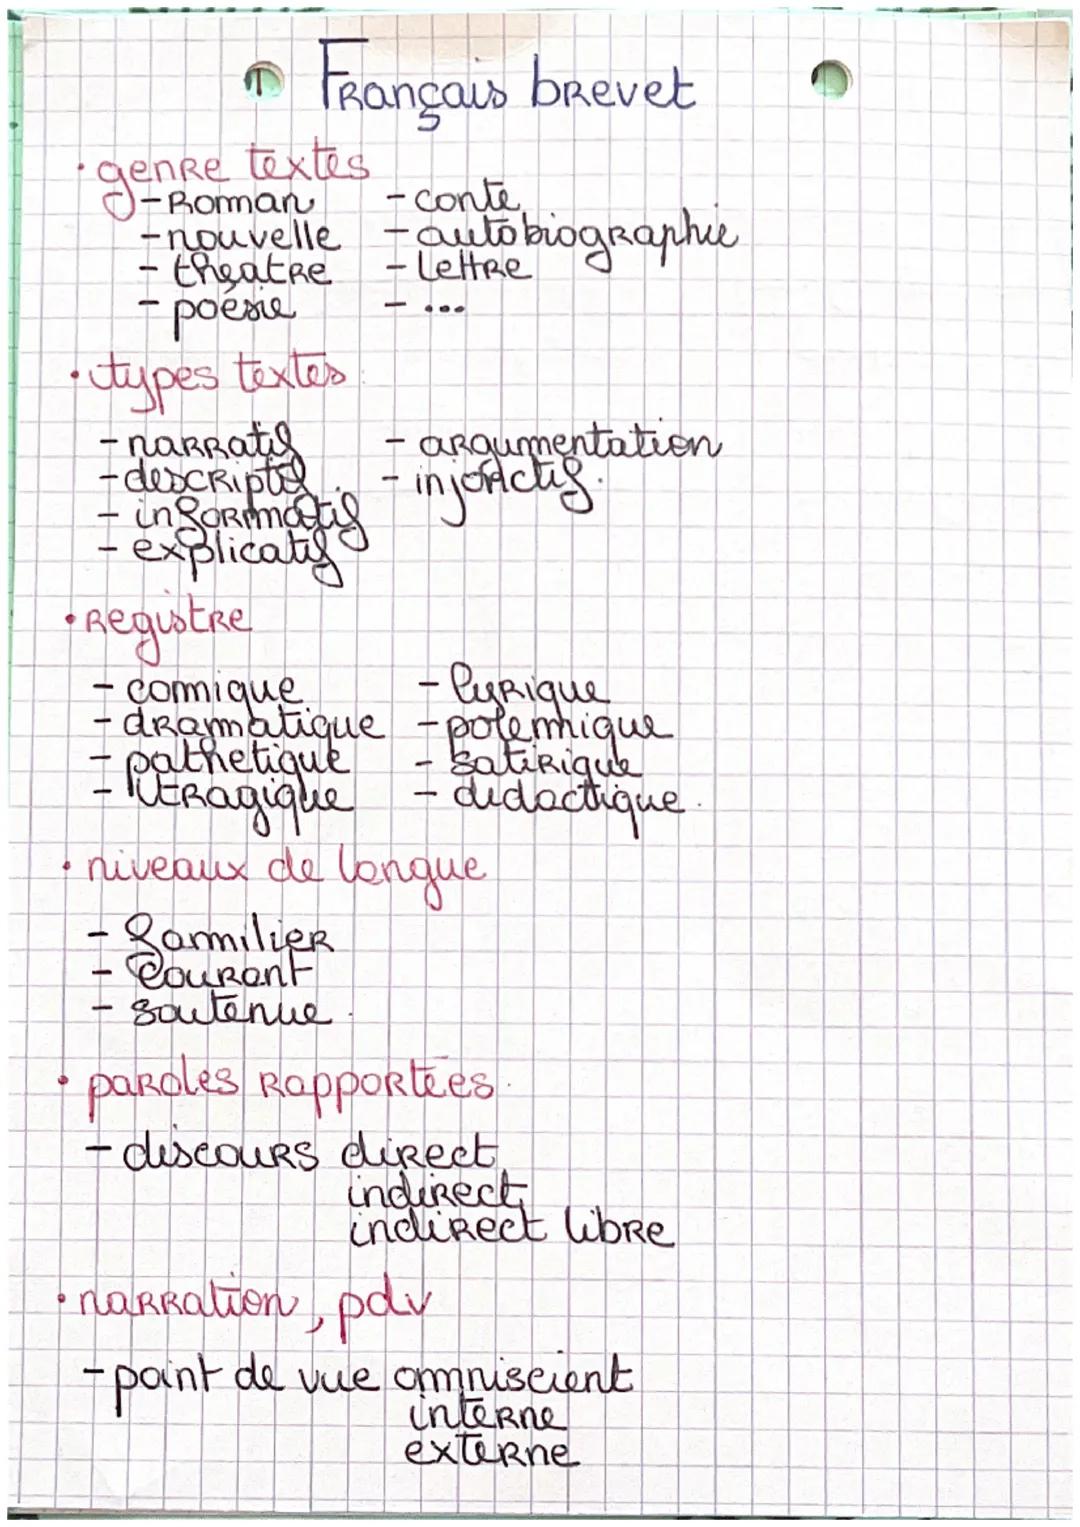 Français brevet
• genre textes
- Roman - conte
- nouvelle - autobiographie
- théatre - lettre
- poésie - ...
• types textes
- narratif - argumentation
- descriptif - injonctif.
- informatif
- explicatif
• Registre
- comique - lyrique
- dramatique - polemique
- pathetique - satirique
- tragique - didactique.
• niveaux de langue
- familier
- courant
- soutenue.
• paroles rapportées.
- discours direct
indirect
indirect libre
• narration, pdv
- point de vue omniscient
interne
externe